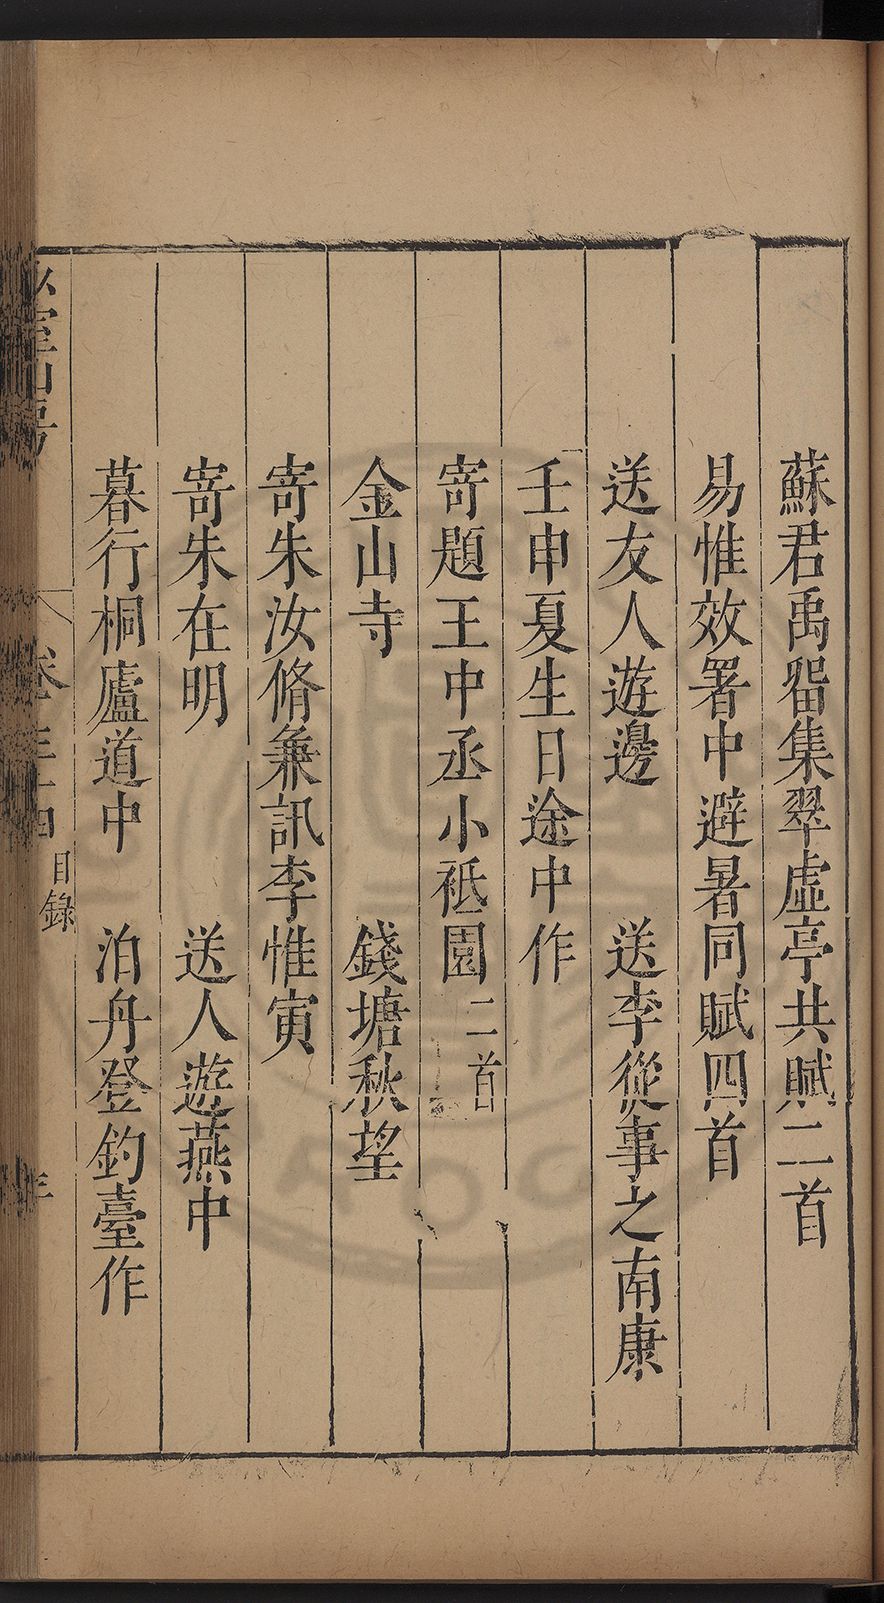 蘇君禹畱集翠虛亭共賦二首
易惟效署中避暑同賦四首
送友人遊邊 送李從事之南康
壬申夏生日途中作
寄題王中丞小祗園二首
金山寺 錢塘秋望
寄朱汝脩兼訊李惟寅
寄朱在明 送人遊燕中
暮行桐廬道中 泊舟登釣臺作
少室山房 卷三十四 目錄